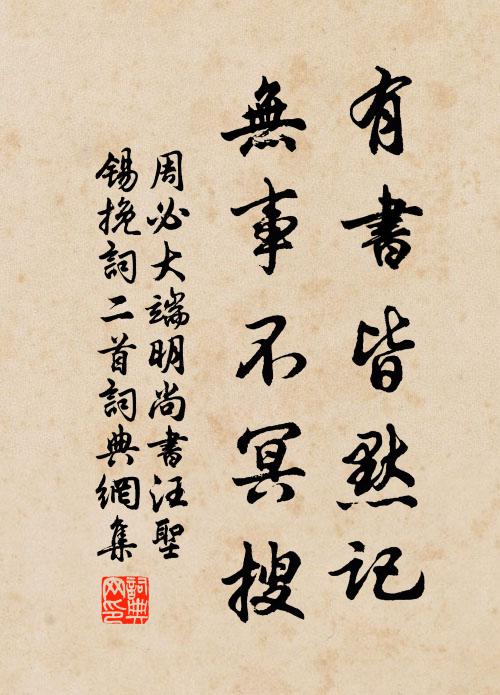 有書皆默記
無事不冥搜
周必大端明尚書汪聖
錫挽詞二首詞典網集
詞典網印